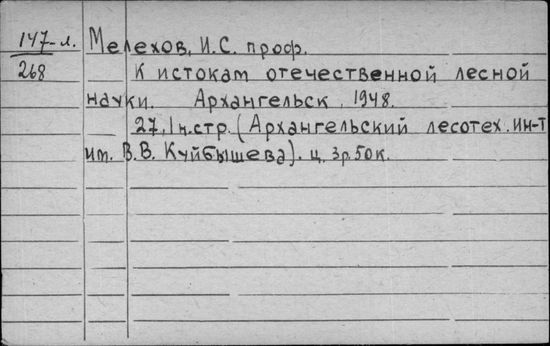 147-л. Мелехов, И.С. проф.
268 К истокам отечественной лесной
науки. Архангельск, 1948.
27, 1н.стр. (Архангельский лесотех. ин-т
им. В.В. Куйбышева). ц. 3р.50к.